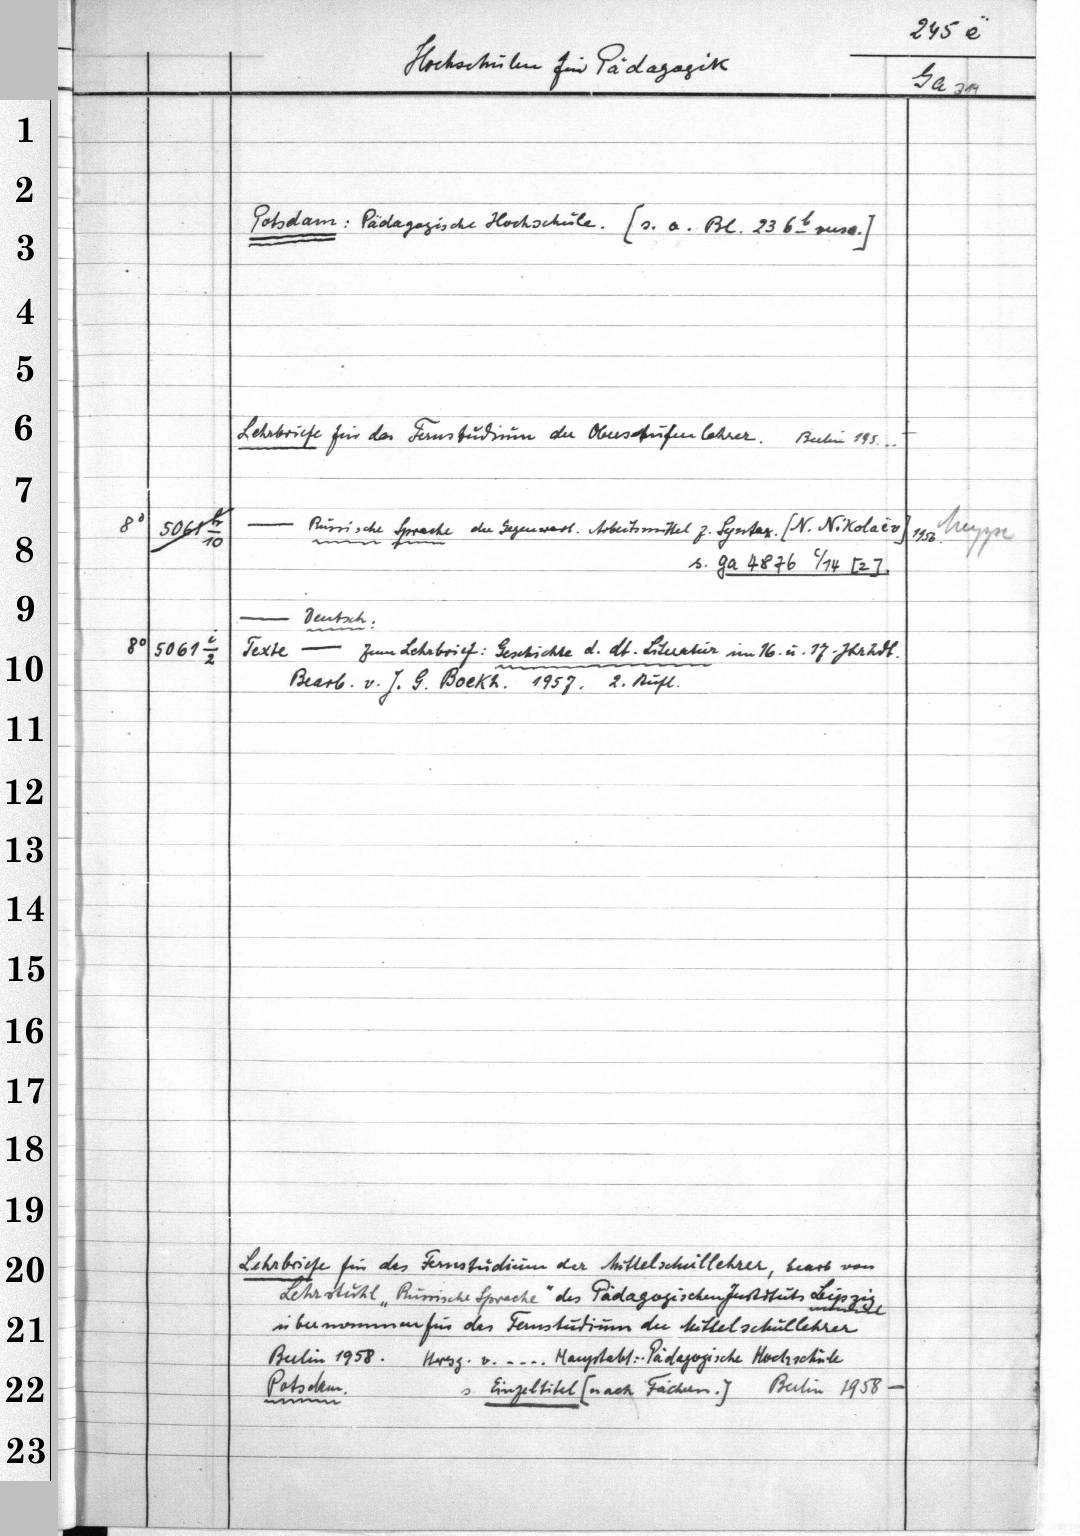 245 ë
Hochschulen für Pädagogik
Ga 314
1
2
Potsdam: Pädagogische Hochschule. [s. a. Bl. 236 b
3
4
5
6 Lehrbriefe für das Fernstudium der Oberstufenlehrer. Berlin 195...
7
8° 5061 h/10 — Russische Sprache der Gegenwart. Arbeitsmittel z. Syntax. [N. Nikolaëv] 1956.
8 s. ga 4876 c/14 [2].
9 — Deutsch:
8° 5061 i/2 Texte — zum Lehrbrief: Geschichte d. dt. Literatur im 16. u. 17. Jhrhdt.
10 Bearb. v. J. G. Boekh. 1957. 2. Aufl.
11
12
13
14
15
16
17
18
19
20 Lehrbriefe für das Fernstudium der Mittelschullehrer, bearb von
Lehrstuhl „Russische Sprache" des Pädagogischen Instituts Leipzig
21 übernommen für das Fernstudium der Mittelschullehrer
Berlin 1958. Hrsg. v. .... Hauptabt.: Pädagogische Hochschule
22 Potsdam. s. Einzeltitel [nach Fächern.] Berlin 1958 —
23